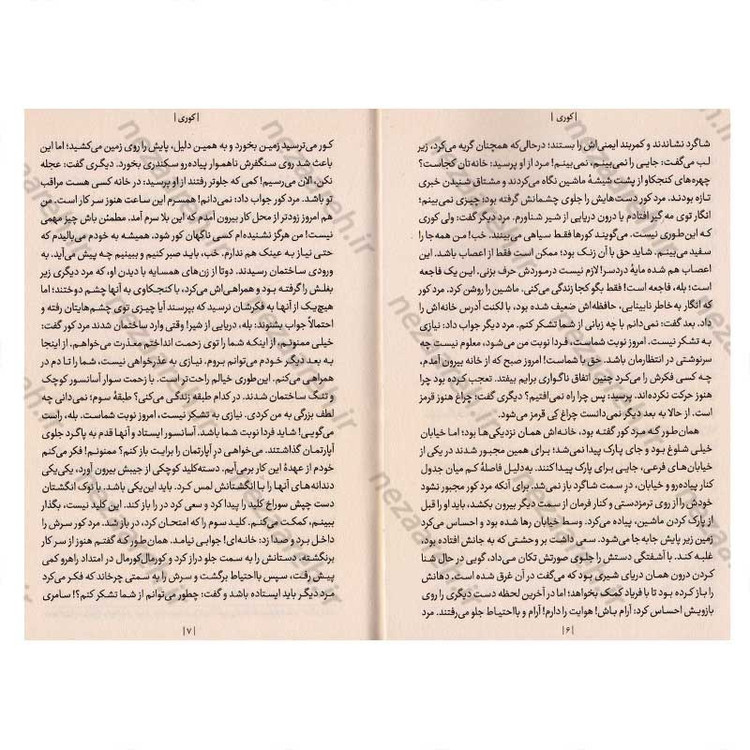 | کوری |
شاگرد نشاندند و کمربند ایمنی‌اش را بستند؛ درحالی‌که همچنان گریه می‌کرد، زیر
لب می‌گفت: جایی را نمی‌بینم، نمی‌بینم! مرد از او پرسید: خانه‌تان کجاست؟
چهره‌های کنجکاو از پشت شیشهٔ ماشین نگاه می‌کردند و مشتاق شنیدن خبری
تازه بودند. مرد کور دست‌هایش را جلوی چشمانش گرفته بود: چیزی نمی‌بینم؛
انگار توی مه گیر افتادم یا درون دریایی از شیر شناورم. مرد دیگر گفت: ولی کوری
که این‌طوری نیست. می‌گویند کورها فقط سیاهی می‌بینند. خب! من همه‌جا را
سفید می‌بینم. شاید حق با آن زنک بود؛ ممکن است فقط از اعصاب باشد. این
اعصاب هم شده مایهٔ دردسر! لازم نیست درموردش حرف بزنی، این یک فاجعه
است؛ بله، فاجعه است! فقط بگو کجا زندگی می‌کنی. ماشین را روشن کرد. مرد کور
که انگار به‌خاطر نابینایی، حافظه‌اش ضعیف شده بود، با لکنت آدرس خانه‌اش را
داد. بعد گفت: نمی‌دانم با چه زبانی از شما تشکر کنم. مرد دیگر جواب داد: نیازی
به تشکر نیست. امروز نوبت شماست، فردا نوبت من می‌شود، معلوم نیست چه
سرنوشتی در انتظارمان باشد. حق با شماست! امروز صبح که از خانه بیرون آمدم،
چه کسی فکرش را می‌کرد چنین اتفاق ناگواری برایم بیفتد. تعجب کرده بود چرا
هنوز حرکت نکرده‌اند. پرسید: پس چرا راه نمی‌افتیم؟ دیگری گفت: چراغ هنوز قرمز
است. از حالا به بعد دیگر نمی‌دانست چراغ کِی قرمز می‌شود.
همان‌طور که مرد کور گفته بود، خانه‌اش همان نزدیکی‌ها بود؛ اما خیابان
خیلی شلوغ بود و جای پارک پیدا نمی‌شد؛ برای همین مجبور شدند در یکی از
خیابان‌های فرعی، جایی برای پارک پیدا کنند. به‌دلیل فاصلهٔ کم میان جدول
کنار پیاده‌رو و خیابان، درِ سمت شاگرد باز نمی‌شد. برای آنکه مرد کور مجبور نشود
خودش را از روی ترمزدستی و کنار فرمان از سمت دیگر بیرون بکشد، باید او را قبل
از پارک کردن ماشین، پیاده می‌کرد. وسط خیابان رها شده بود و احساس می‌کرد
زمین زیر پایش جابه‌جا می‌شود. سعی داشت بر وحشتی که به جانش افتاده بود،
غلبه کند. با آشفتگی دستش را جلوی صورتش تکان می‌داد، گویی در حال شنا
کردن درون همان دریای شیری بود که می‌گفت در آن غرق شده است. دهانش
را باز کرده بود تا با فریاد کمک بخواهد؛ اما در آخرین لحظه دست دیگری را روی
بازویش احساس کرد: آرام باش! هوایت را دارم! آرام و بااحتیاط جلو می‌رفتند. مرد
|۶|
| کوری |
کور می‌ترسید زمین بخورد و به همین دلیل، پایش را روی زمین می‌کشید؛ اما این
باعث شد روی سنگفرش ناهموار پیاده‌رو سکندری بخورد. دیگری گفت: عجله
نکن، الان می‌رسیم! کمی که جلوتر رفتند از او پرسید: در خانه کسی هست مراقب
تو باشد. مرد کور جواب داد: نمی‌دانم! همسرم این ساعت هنوز سر کار است. من
هم امروز زودتر از محل کار بیرون آمدم که این بلا سرم آمد. مطمئن باش چیز مهمی
نیست! من هرگز نشنیده‌ام کسی ناگهان کور شود، همیشه به خودم می‌بالیدم که
حتی نیاز به عینک هم ندارم. خب، باید صبر کنیم و ببینیم چه پیش می‌آید. به
ورودی ساختمان رسیدند. دوتا از زن‌های همسایه با دیدن او، که مرد دیگری زیر
بغلش را گرفته بود و همراهی‌اش می‌کرد، با کنجکاوی به آنها چشم دوختند؛ اما
هیچ‌یک از آنها به فکرشان نرسید که بپرسند آیا چیزی توی چشم‌هایتان رفته و
احتمالاً جواب بشنوند: بله، دریایی از شیر! وقتی وارد ساختمان شدند مرد کور گفت:
خیلی ممنونم، از اینکه شما را توی زحمت انداختم معذرت می‌خواهم. از اینجا
به بعد دیگر خودم می‌توانم بروم. نیازی به عذرخواهی نیست، شما را تا دم در
همراهی می‌کنم. این‌طوری خیالم راحت‌تر است. با زحمت سوار آسانسور کوچک
و تنگ ساختمان شدند. در کدام طبقه زندگی می‌کنی؟ طبقهٔ سوم؛ نمی‌دانی چه
لطف بزرگی به من کردی. نیازی به تشکر نیست، امروز نوبت شماست. بله، راست
می‌گویی! شاید فردا نوبت شما باشد. آسانسور ایستاد و آنها قدم به پاگرد جلوی
آپارتمان گذاشتند. می‌خواهی درِ آپارتمان را برایت باز کنم؟ ممنونم! فکر می‌کنم
خودم از عهدهٔ این کار برمی‌آیم. دسته‌کلید کوچکی از جیبش بیرون آورد، یکی‌یکی
دندانه‌های آنها را با انگشتانش لمس کرد. باید این‌یکی باشد. با نوک انگشتان
دست چپش سوراخ کلید را پیدا کرد و سعی کرد در را باز کند. این کلید نیست، بگذار
ببینم، کمکت می‌کنم. کلید سوم را که امتحان کرد، در باز شد. مرد کور سرش را
داخل برد و صدا زد: خانه‌ای؟ جوابی نیامد. همان‌طور که گفتم هنوز از سر کار
برنگشته. دستانش را به سمت جلو دراز کرد و کورمال‌کورمال در امتداد راهرو کمی
پیش رفت، پس بااحتیاط برگشت و سرش را به سمتی چرخاند که فکر می‌کرد
مرد دیگر باید ایستاده باشد و گفت: چطور می‌توانم از شما تشکر کنم؟! سامری
|۷|
nezaareh.ir